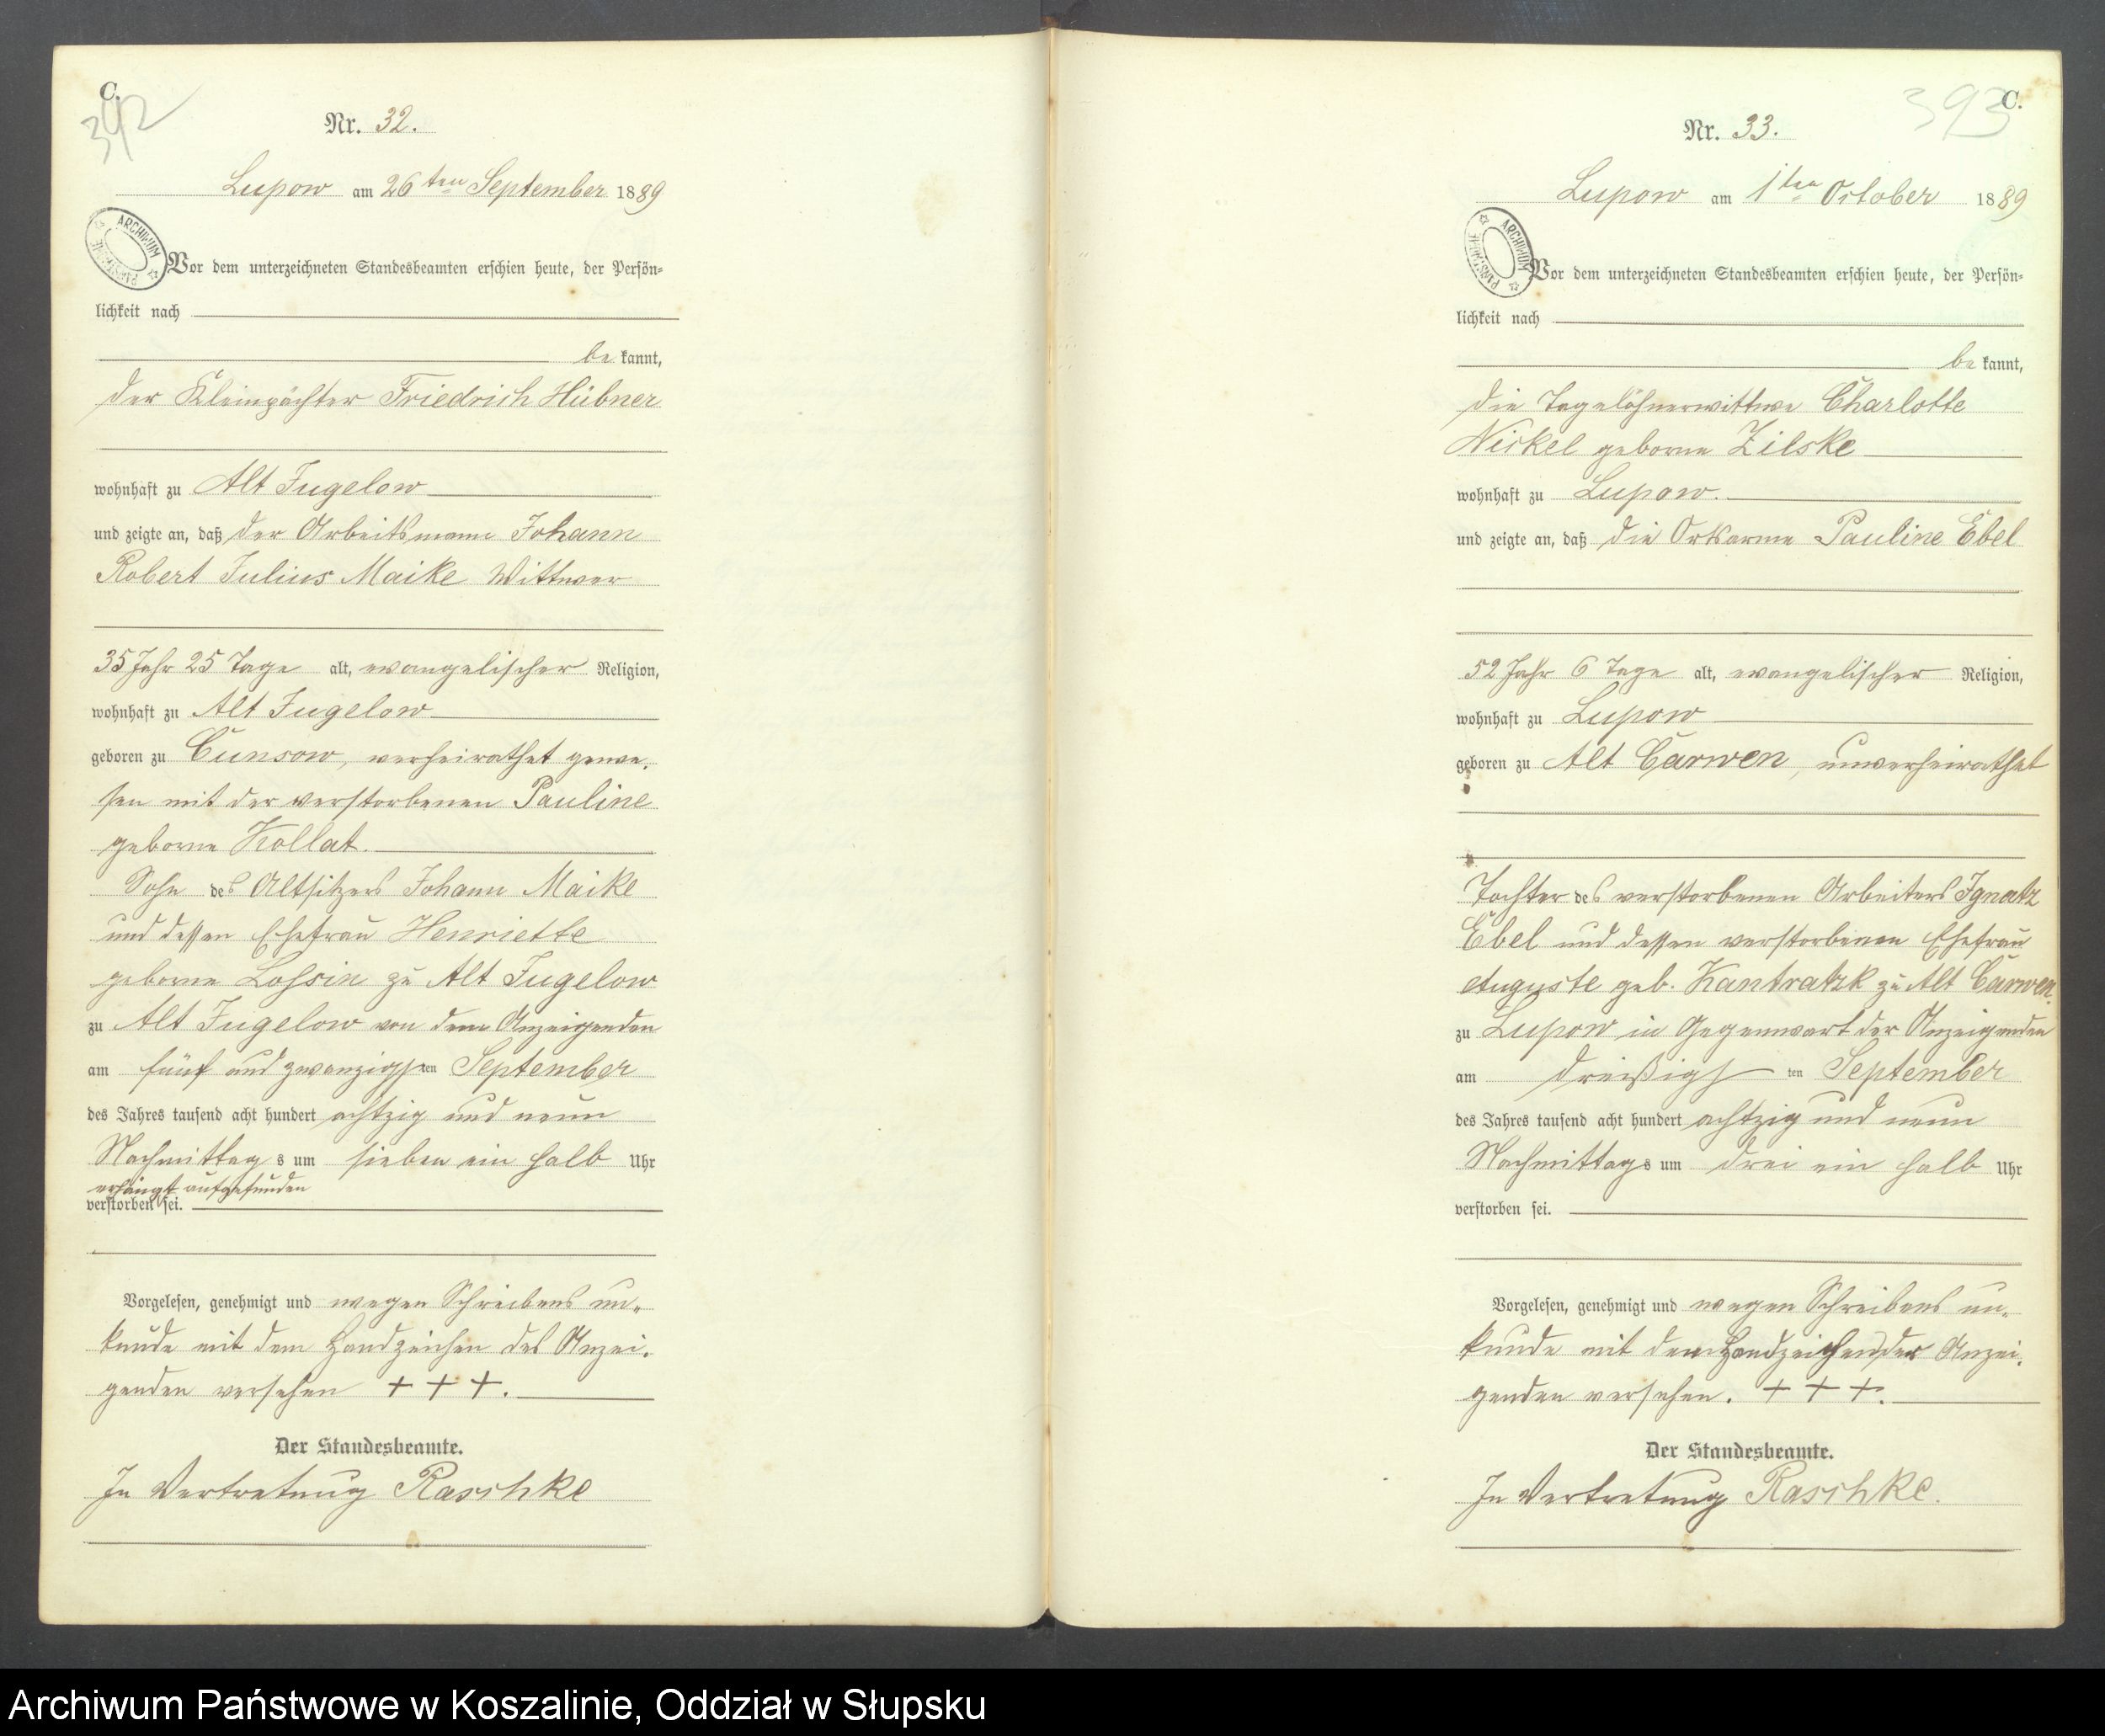 C.
392
Nr. 32.
Lupow am 26ten September 1889
ARCHIWUM
Vor dem unterzeichneten Standesbeamten erschien heute, der Persön=
lichkeit nach
be kannt,
der Kleinpächter Friedrich Hübner
wohnhaft zu Alt Jugelow
und zeigte an, daß der Arbeitsmann Johann
Robert Julius Maike Wittwer
35 Jahr 25 Tage alt, evangelischer Religion,
wohnhaft zu Alt Jugelow
geboren zu Cunsow, verheirathet gewe-
sen mit der verstorbenen Pauline
geborne Kollat.
Sohn des Altsitzers Johann Maike
und dessen Ehefrau Henriette
geborne Lossin zu Alt Jugelow
zu Alt Jugelow von dem Anzeigenden
am fünf und zwanzigsten September
des Jahres tausend acht hundert achtzig und neun
Nachmittags um sieben ein halb Uhr
erhängt aufgefunden
verstorben sei.
Vorgelesen, genehmigt und wegen Schreibens un-
kunde mit dem Handzeichen des Anzei-
genden versehen + + +.
Der Standesbeamte.
In Vertretung Raschke
C.
393
Nr. 33.
Lupow am 1ten October 1889
ARCHIWUM
Vor dem unterzeichneten Standesbeamten erschien heute, der Persön=
lichkeit nach
be kannt,
die Tagelöhnerwittwe Charlotte
Nickel geborne Zilske
wohnhaft zu Lupow.
und zeigte an, daß die Ortsarme Pauline Ebel
52 Jahr 6 Tage alt, evangelischer Religion,
wohnhaft zu Lupow
geboren zu Alt Carwen, unverheirathet
Tochter des verstorbenen Arbeiters Ignatz
Ebel und dessen verstorbenen Ehefrau
Auguste geb. Kantratzk zu Alt Carwen.
zu Lupow in Gegenwart der Anzeigenden
am dreißigsten September
des Jahres tausend acht hundert achtzig und neun
Nachmittags um drei ein halb Uhr
verstorben sei.
Vorgelesen, genehmigt und wegen Schreibens un-
kunde mit dem Handzeichen der Anzei-
genden versehen. + + +.
Der Standesbeamte.
In Vertretung Raschke.
Archiwum Państwowe w Koszalinie, Oddział w Słupsku